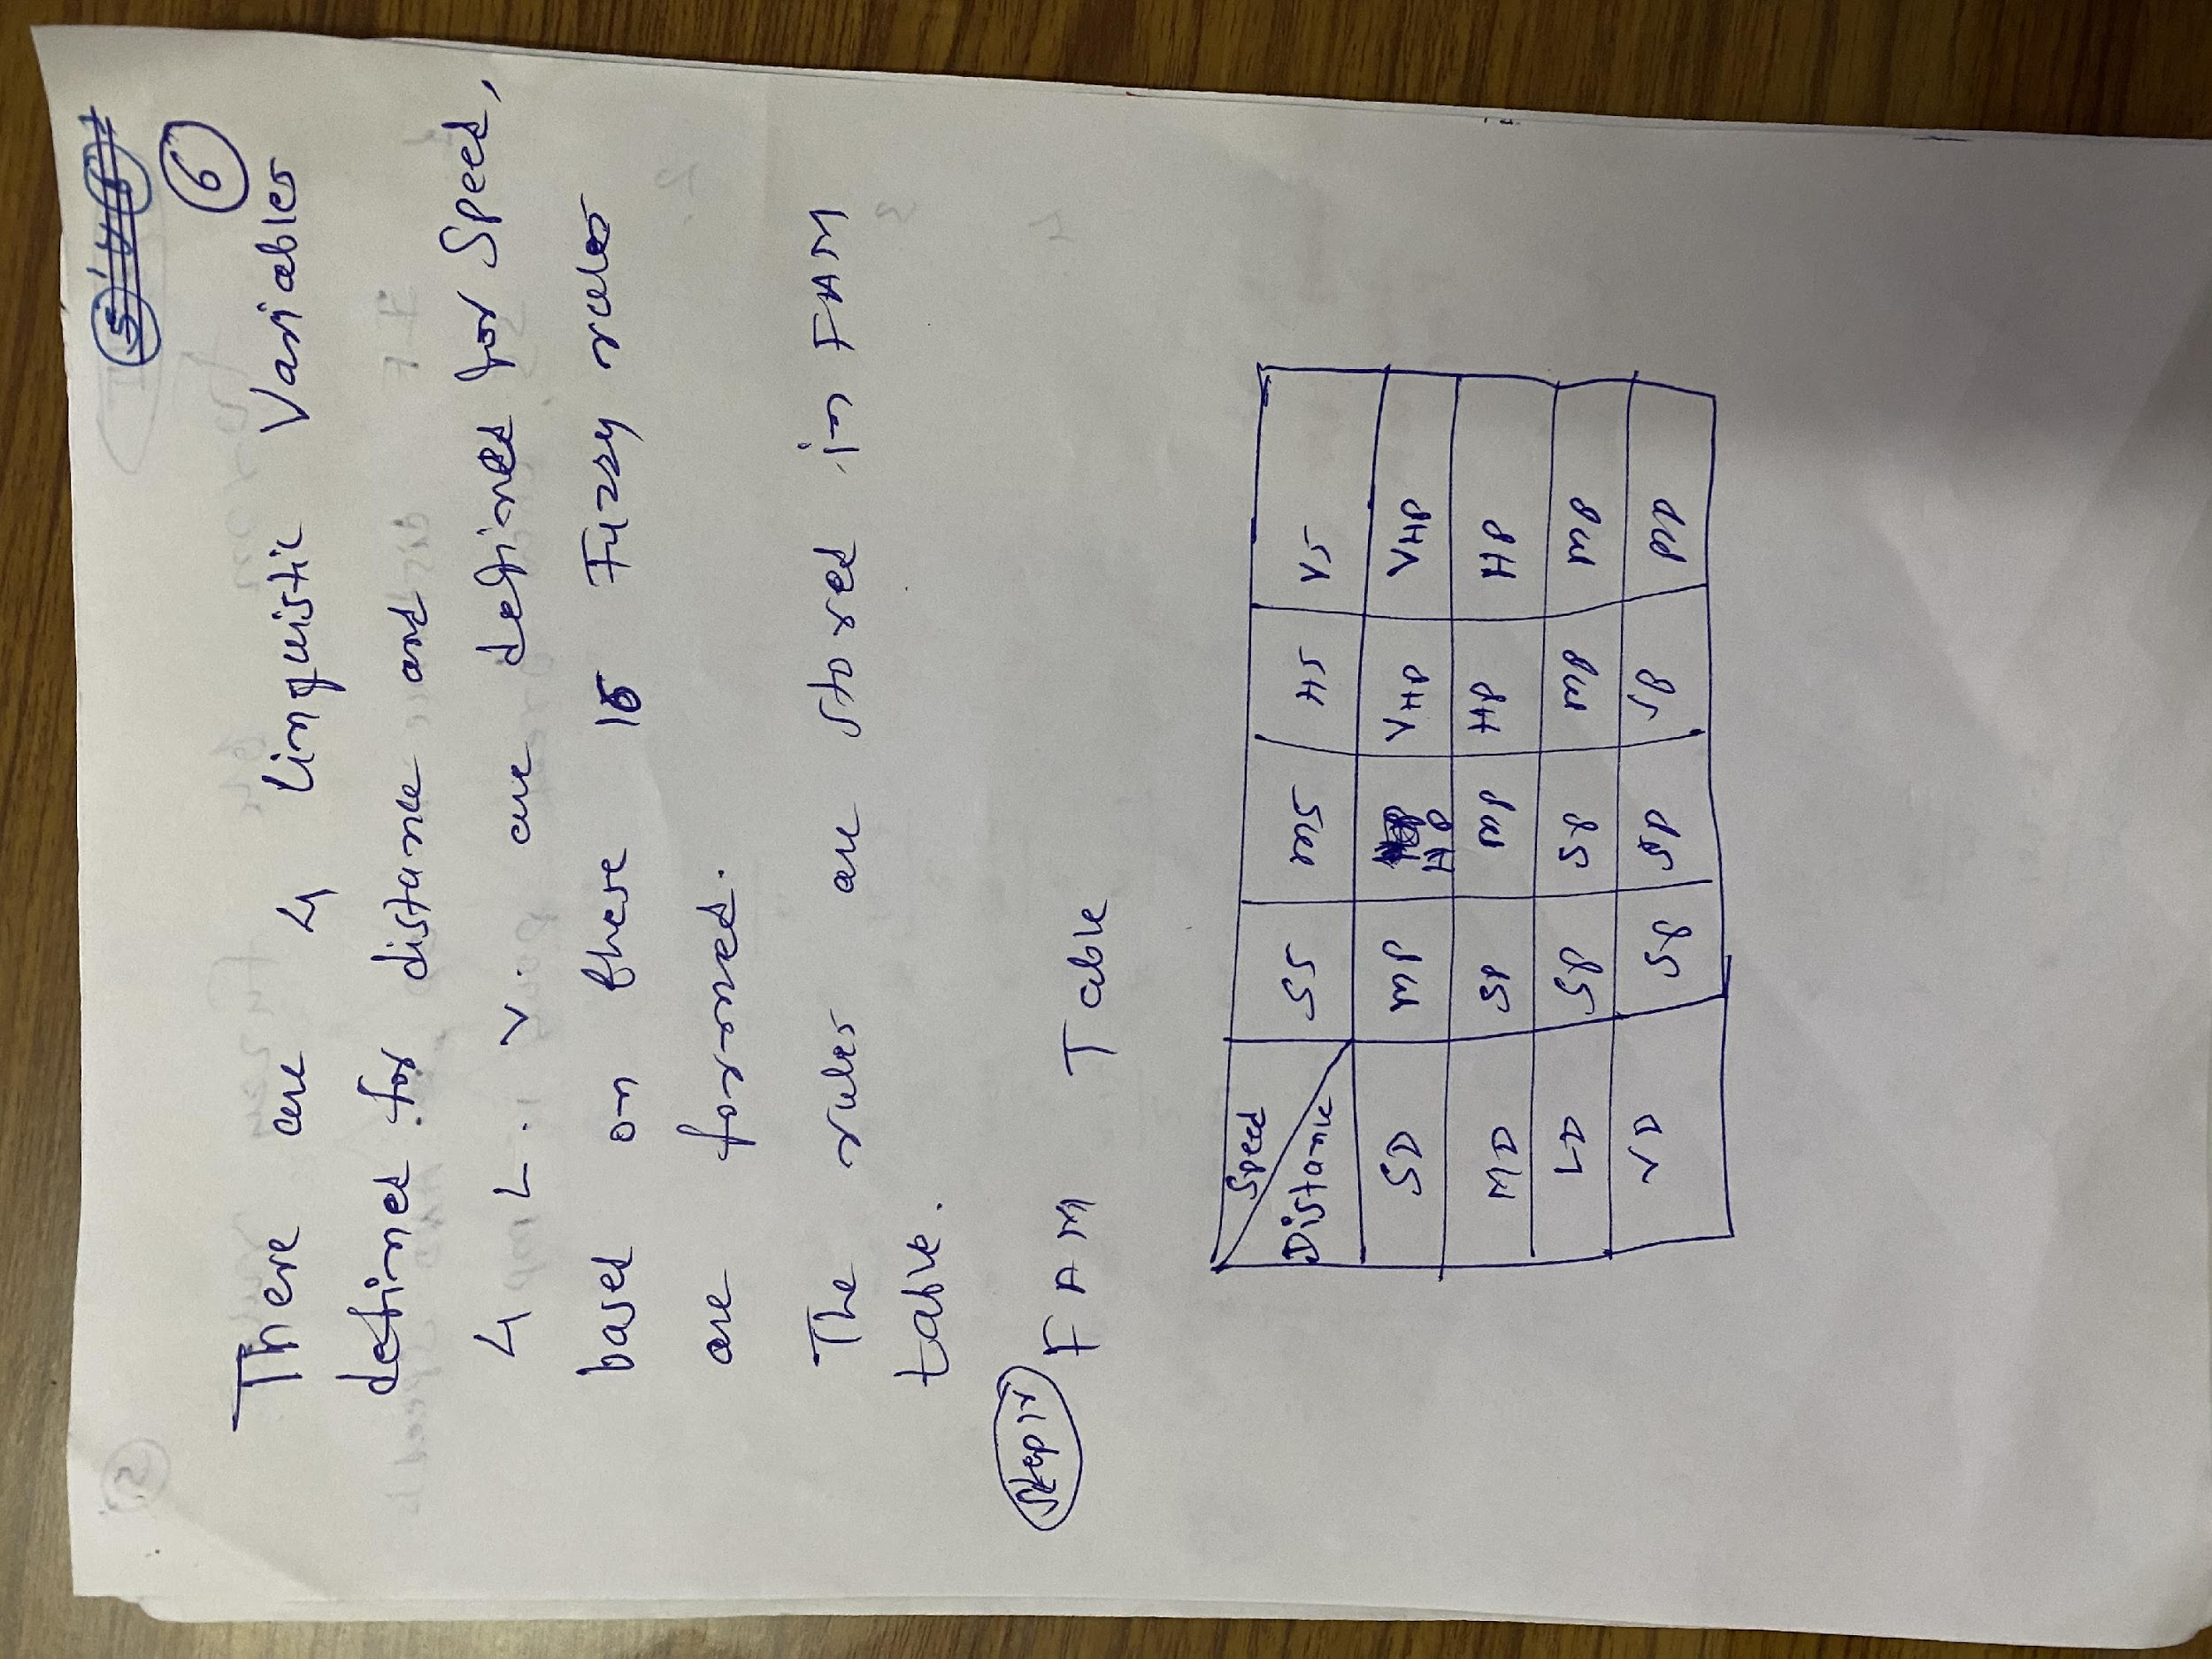 6
There are 4 Linguistic Variables
defined for distance and
4 L.V. are defined for Speed,
based on these 16 Fuzzy rules
are formed.
The rules are stored in FAM
table.
Step IV FAM Table
Speed
Distance SS MS HS VS
SD MP HP VHP VHP
MD SP MP HP HP
LD SP SP MP MP
VD SP SP SP